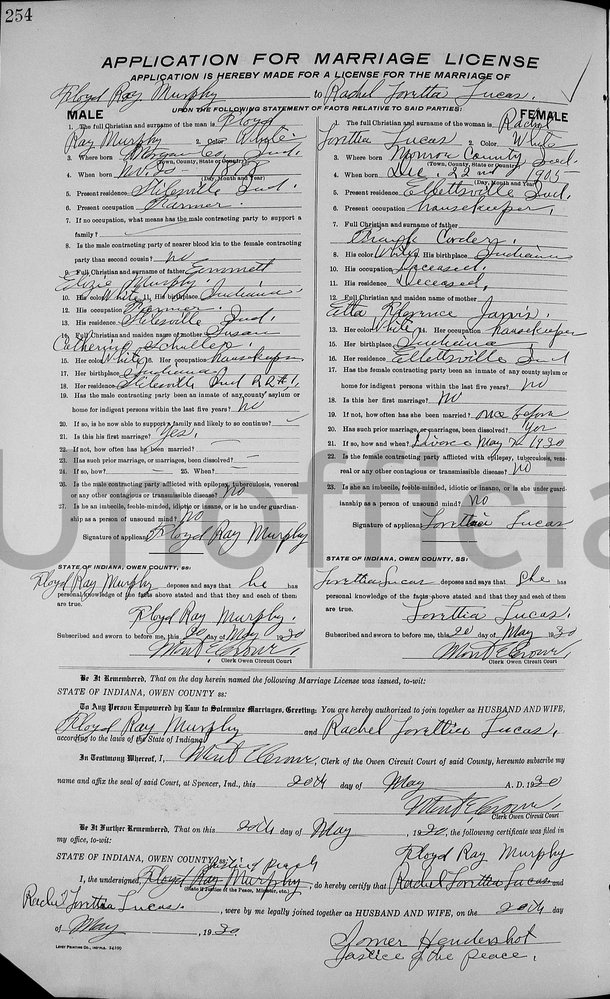 254
APPLICATION FOR MARRIAGE LICENSE
APPLICATION IS HEREBY MADE FOR A LICENSE FOR THE MARRIAGE OF
Floyd Ray Murphy to Rachel Lorettia Lucas.
UPON THE FOLLOWING STATEMENT OF FACTS RELATIVE TO SAID PARTIES:
MALE
1. The full Christian and surname of the man is Floyd
Ray Murphy 2. Color White
3. Where born Morgan Co. Ind.
(Town, County, State or Country)
4. When born Nov. 20
(Day, Month and Year)
5. Present residence Stilesville Ind.
6. Present occupation Farmer
7. If no occupation, what means has the male contracting party to support a
family?
8. Is the male contracting party of nearer blood kin to the female contracting
party than second cousin? no
9. Full Christian and surname of father Emmett
Murphy.
10. His color White 11. His birthplace Indiana
12. His occupation Farmer
13. His residence Stilesville Ind.
14. Full Christian and maiden name of mother Susan
Catherine
15. Her color White 16. Her occupation housekeeper
17. Her birthplace Indiana
18. Her residence Stilesville Ind
19. Has the male contracting party been an inmate of any county asylum or
home for indigent persons within the last five years? No
20. If so, is he now able to support a family and likely to so continue?
21. Is this his first marriage? Yes.
22. If not, how often has he been married?
23. Has such prior marriage, or marriages, been dissolved?
24. If so, how? 25. When?
26. Is the male contracting party afflicted with epilepsy, tuberculosis, venereal
or any other contagious or transmissible disease? No
27. Is he an imbecile, feeble-minded, idiotic or insane, or is he under guardian-
ship as a person of unsound mind? No
Signature of applicant Floyd Ray Murphy
STATE OF INDIANA, OWEN COUNTY, ss:
Floyd Ray Murphy deposes and says that he has
personal knowledge of the facts above stated and that they and each of them
are true.
Floyd Ray Murphy.
Subscribed and sworn to before me, this 20 day of May 1930
Mont E Crowe,
Clerk Owen Circuit Court
FEMALE
1. The full Christian and surname of the woman is Rachel
Lorettia Lucas 2. Color White
3. Where born Monroe County Ind.
(Town, County, State or Country)
4. When born Dec. 22nd 1905
(Day, Month and Year)
5. Present residence Ellettsville Ind.
6. Present occupation housekeeper,
7. Full Christian and surname of father
Corder,
8. His color White 9. His birthplace Indiana
10. His occupation Deceased.
11. His residence Deceased,
12. Full Christian and maiden name of mother
Etta Florence Jarvis.
13. Her color White 14. Her occupation housekeeper
15. Her birthplace Indiana
16. Her residence Ellettsville Ind
17. Has the female contracting party been an inmate of any county asylum or
home for indigent persons within the last five years? no
18. Is this her first marriage? No
19. If not, how often has she been married? once before
20. Has such prior marriage, or marriages, been dissolved? Yes
21. If so, how and when? Divorce May 1930
22. Is the female contracting party afflicted with epilepsy, tuberculosis, vene-
real or any other contagious or transmissible disease? No
23. Is she an imbecile, feeble-minded, idiotic or insane, or is she under guard-
ianship as a person of unsound mind? No
Signature of applicant Lorettia Lucas
STATE OF INDIANA, OWEN COUNTY, SS:
Lorettia Lucas deposes and says that She has
personal knowledge of the facts above stated and that they and each of them
are true.
Lorettia Lucas,
Subscribed and sworn to before me, this 20 day of May 1930
Mont E Crowe,
Clerk Owen Circuit Court
Be It Remembered, That on the day herein named the following Marriage License was issued, to-wit:
STATE OF INDIANA, OWEN COUNTY ss:
To Any Person Empowered by Law to Solemnize Marriages, Greeting: You are hereby authorized to join together as HUSBAND AND WIFE,
Floyd Ray Murphy and Rachel Lorettia Lucas,
according to the laws of the State of Indiana.
In Testimony Whereof, I, Mont E Crowe, Clerk of the Owen Circuit Court of said County, hereunto subscribe my
name and affix the seal of said Court, at Spencer, Ind., this 20th day of May A. D. 1930
Mont E Crowe,
Clerk Owen Circuit Court
Be It Further Remembered, That on this 20th day of May, 1930, the following certificate was filed in
my office, to-wit:
STATE OF INDIANA, OWEN COUNTY ss:
Floyd Ray Murphy
I, the undersigned, Floyd Ray Murphy, do hereby certify that Rachel Lorettia Lucas and
(State if Justice of the Peace, Minister, etc.)
Rachel Lorettia Lucas, were by me legally joined together as HUSBAND AND WIFE, on the 20th day
of May, 1930
Homer Hendershot
Justice of the peace.
Unofficia